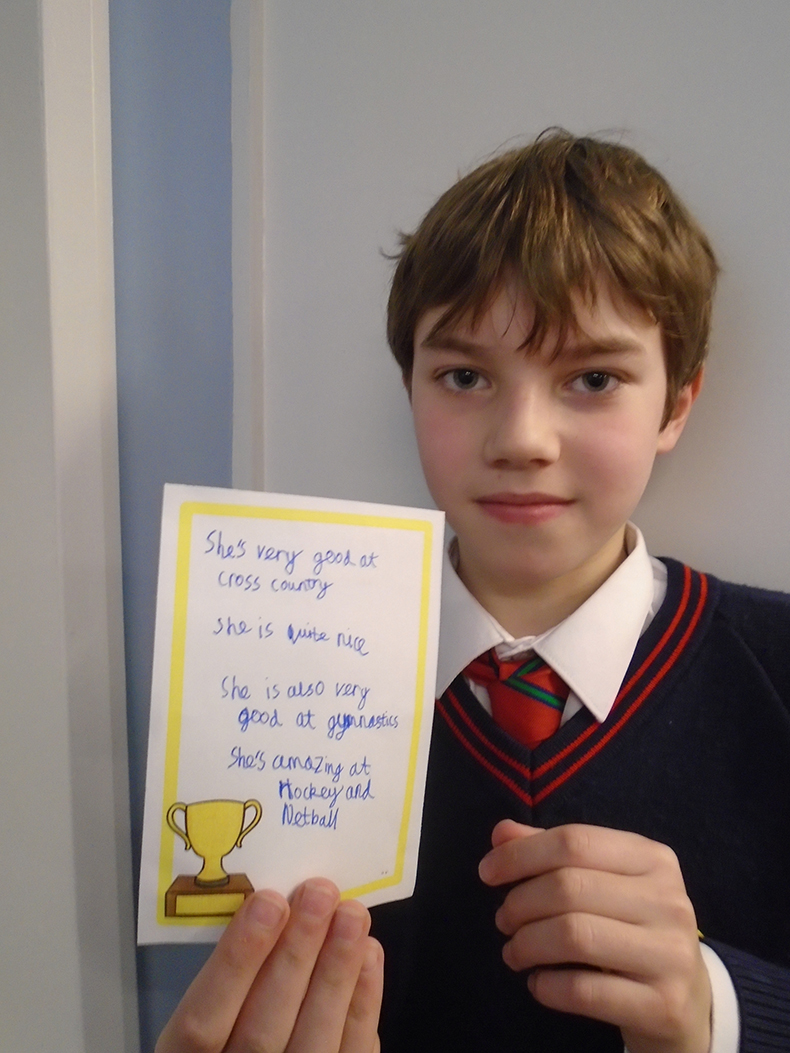 She's very good at
cross country
she is quite nice
She is also very
good at gymnastics
She's amazing at
Hockey and
Netball